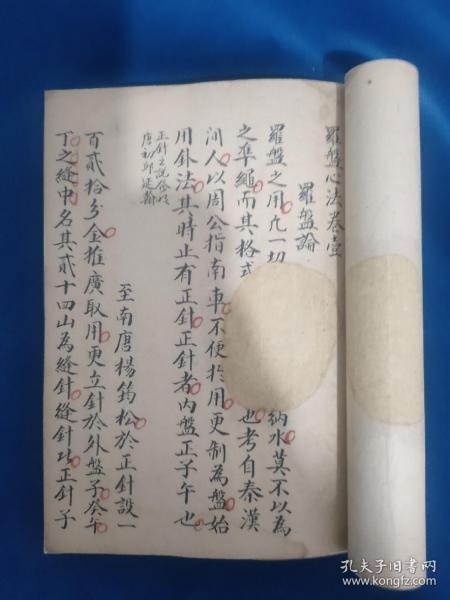 羅盤心法卷壹
羅盤論
羅盤之用凡一切
納水莫不以為
之準繩而其格式
也考自秦漢
間人以周公指南車不便於用更制為盤始
用卦法其時止有正針正針者內盤正子午也
正針之說
唐初邱延翰
至南唐楊筠松於正針設一
百貳拾分金推廣取用更立針於外盤子癸午
丁之縫中名其貳十四山為縫針縫針比正針子
孔夫子旧书网
www.kongfz.com